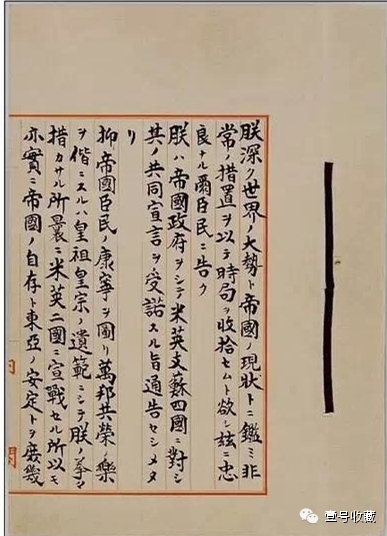 朕深ク世界ノ大勢ト帝國ノ現状トニ鑑ミ非
常ノ措置ヲ以テ時局ヲ收拾セムト欲シ茲ニ忠
良ナル爾臣民ニ告ク
朕ハ帝國政府ヲシテ米英支蘇四國ニ對シ
其ノ共同宣言ヲ受諾スル旨通告セシメタ
リ
抑帝國臣民ノ康寧ヲ圖リ萬邦共榮ノ樂
ヲ偕ニスルハ皇祖皇宗ノ遺範ニシテ朕ノ拳々
措カサル所曩ニ米英二國ニ宣戰セル所以モ
亦實ニ帝國ノ自存ト東亞ノ安定トヲ庶幾
壹号收藏